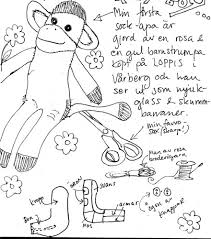 Min första
sock-apa är
gjord av en rosa &
en gul barnstrumpa
köpt på LOPPIS i
Varberg och han
ser ut som mjuk-
glass & skum-
bananer.
min favvo-
sax (skarp!)
Min av rosa
broderigarn
kropp
svans
öron
armar
ögon av
knappar